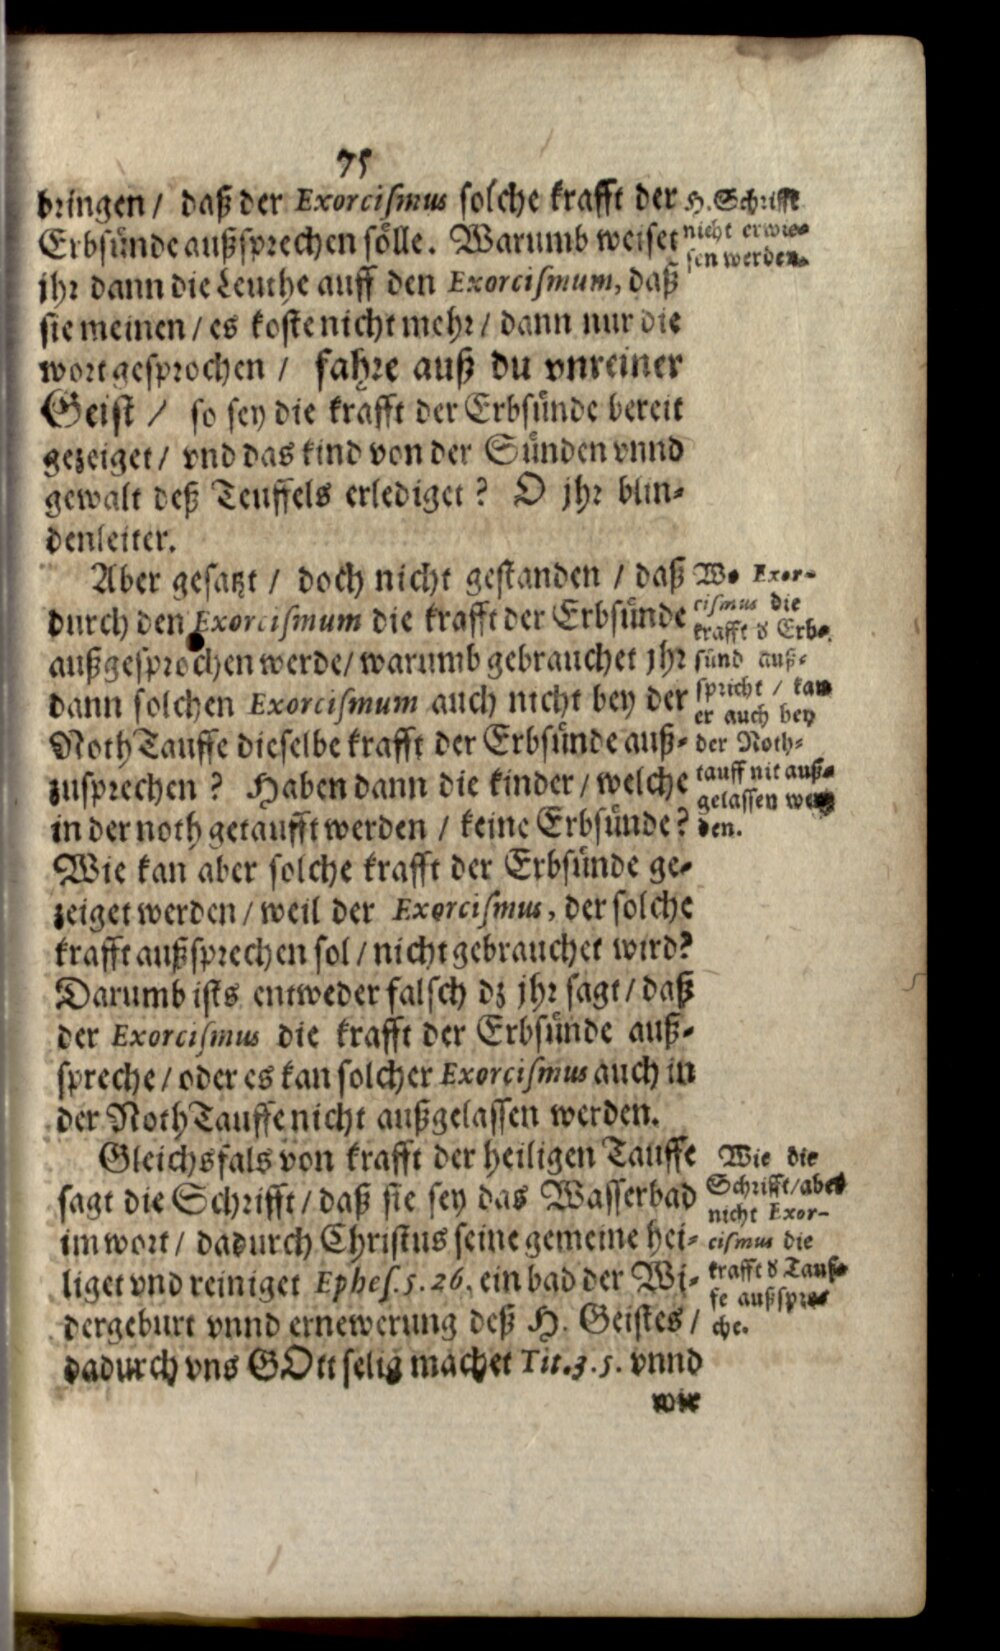 75
bringen / daß der Exorcismus solche krafft der
Erbsünde außsprechen sölle. Warumb weiset
jhr dann die Leuthe auff den Exorcismum, daß
sie meinen / es koste nicht mehr / dann nur die
wort gesprochen / fahre auß du vnreiner
Geist / so sey die krafft der Erbsünde bereit
gezeiget / vnd das kind von der Sünden vnnd
gewalt deß Teuffels erlediget ? O jhr blin-
denleiter.
H. Schrifft
nicht erwie-
sen werden.
Aber gesatzt / doch nicht gestanden / daß
durch den Exorcismum die krafft der Erbsünde
außgesprochen werde / warumb gebrauchet jhr
dann solchen Exorcismum auch nicht bey der
Noth Tauffe dieselbe krafft der Erbsünde auß-
zusprechen ? Haben dann die kinder / welche
in der noth getaufft werden / keine Erbsünde ?
Wie kan aber solche krafft der Erbsünde ge-
zeiget werden / weil der Exorcismus, der solche
krafft außsprechen sol / nicht gebrauchet wird?
Darumb ists entweder falsch dz jhr sagt / daß
der Exorcismus die krafft der Erbsünde auß-
spreche / oder es kan solcher Exorcismus auch in
der Noth Tauffe nicht außgelassen werden.
Wo Exor-
cismus die
krafft d Erb-
sünd auß-
spricht / kan
er auch bey
der Noth-
tauff nit auß-
gelassen wer-
den.
Gleichsfals von krafft der heiligen Tauffe
sagt die Schrifft / daß sie sey das Wasserbad
im wort / dadurch Christus seine gemeine hei-
liget vnd reiniget Ephes. 5. 26. ein bad der Wi-
dergeburt vnnd ernewerung deß H. Geistes /
dadurch vns GOtt selig machet Tit. 3. 5. vnnd
Wie die
Schrifft / aber
nicht Exor-
cismus die
krafft d Tauf-
fe außspre-
che.
wir